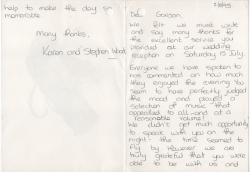 Dear Gordon,
We felt we must write
and say many thanks for
the excellent service you
provided at our wedding
reception on Saturday 15 July.
Everyone we have spoken to
has commented on how much
they enjoyed the evening. You
seem to have perfectly judged
the mood and played a
selection of music that
appealed to all - and at a
reasonable volume!
We didn't get much opportunity
to speak with you on the
night - the time seemed to
fly by. However we are
truly grateful that you were
able to be with us and
help to make the day so
memorable.
Many thanks,
Karen and Stephen